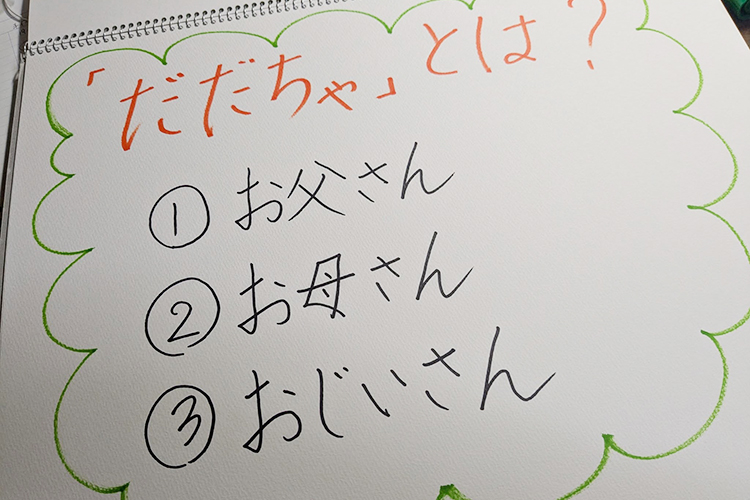 「だだちゃ」とは？
① お父さん
② お母さん
③ おじいさん